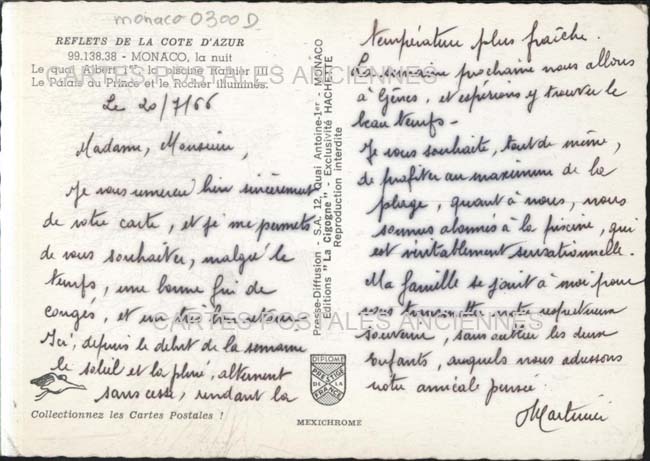 monaco 0300D
REFLETS DE LA COTE D'AZUR
99.138.38 - MONACO, la nuit
Le quai Albert 1er, la piscine Rainier III
Le Palais du Prince et le Rocher illuminés.
CARTES POSTALES ANCIENNES
Le 20/7/66
Madame, Monsieur,
Je vous remercie bien sincèrement
de votre carte, et je me permets
de vous souhaiter, malgré le
temps, une bonne fin de
congés, et un très bon retour.
Ici, depuis le début de la semaine
le soleil et la pluie, alternent
sans cesse, rendant la
Collectionnez les Cartes Postales !
Presse-Diffusion - S.A. 12, Quai Antoine-1er - MONACO
Editions "La Cigogne" - Exclusivité HACHETTE
Reproduction interdite
DIPLOME
PRESTIGE
DE LA
FRANCE
MEXICHROME
température plus fraîche.
La semaine prochaine nous allons
à Gênes, et espérons y trouver le
beau temps -
Je vous souhaite, tout de même,
de profiter au maximum de la
plage, quant à nous, nous
sommes abonnés à la piscine, qui
est véritablement sensationnelle.
Ma famille se joint à moi pour
vous transmettre notre respectueux
CARTES POSTALES ANCIENNES
souvenir, sans oublier les deux
enfants, auxquels nous adressons
notre amicale pensée.